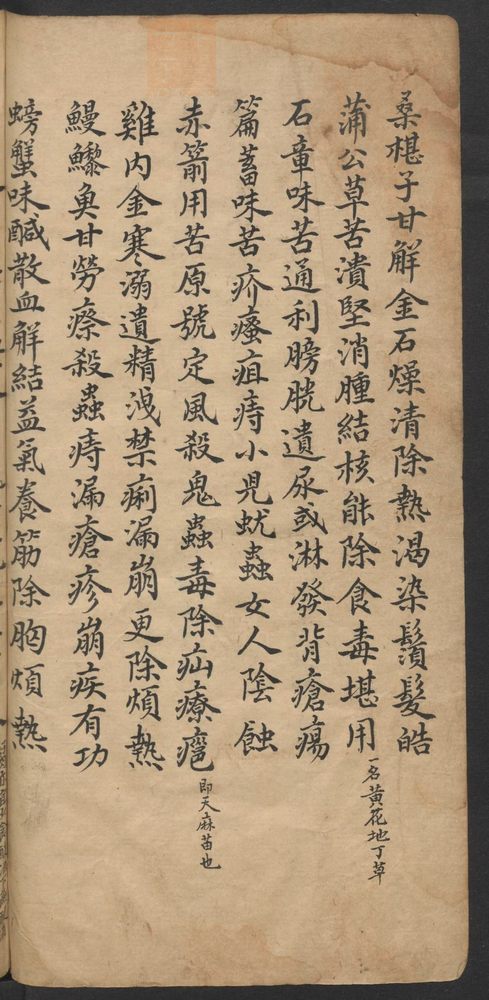 桑椹子甘解金石燥清除熱渴染鬚髮皓
蒲公草苦潰堅消腫結核能除食毒堪用一名黃花地丁草
石韋味苦通利膀胱遺尿或淋發背瘡瘍
萹蓄味苦疥瘙疽痔小児蚘蟲女人陰蝕
赤箭用苦原號定風殺鬼蟲毒除疝療癰即天麻苗也
雞內金寒溺遺精洩禁痢漏崩更除煩熱
鰻鱺魚甘勞瘵殺蟲痔漏瘡疹崩疾有功
螃蟹味醎散血解結益氣養筋除胸煩熱